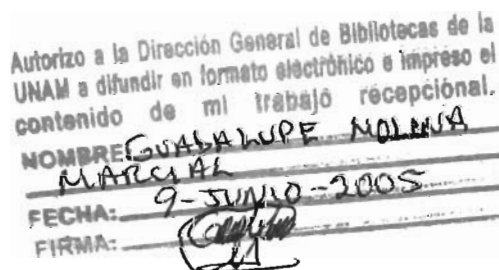 Autorizo a la Dirección General de Bibliotecas de la
UNAM a difundir en formato electrónico e impreso el
contenido de mi trabajo recepcional.
NOMBRE: GUADALUPE MOLINA
MARCIAL
FECHA: 9-JUNIO-2005
FIRMA: